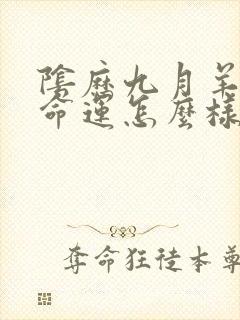 陰歷九月羊
命運怎麼樣
奪命狂徒本尊